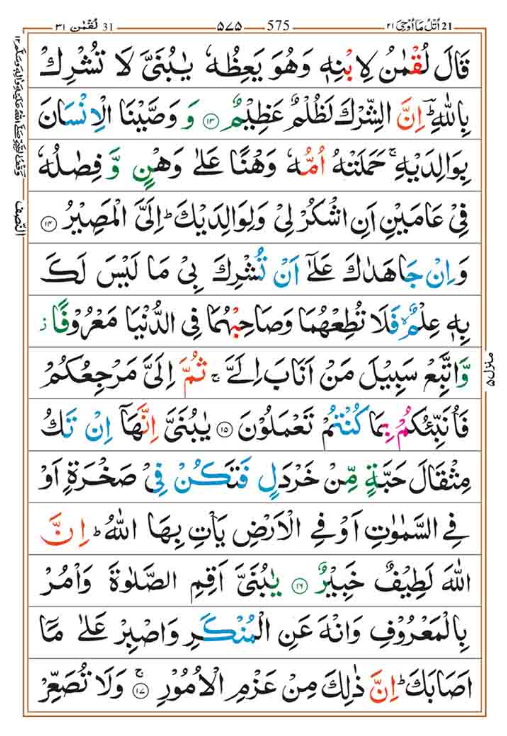 لُقْمٰن ٣١ 31 ٥٧٥ 575 اُتْلُ مَاۤ اُوْحِىَ ٢١ 21
قَالَ لُقْمٰنُ لِابْنِهٖ وَهُوَ يَعِظُهٗ يٰبُنَيَّ لَا تُشْرِكْ
بِاللّٰهِ ؔؕ اِنَّ الشِّرْكَ لَظُلْمٌ عَظِيْمٌ ۝١٣ وَ وَصَّيْنَا الْاِنْسَانَ
بِوَالِدَيْهِ ۚ حَمَلَتْهُ اُمُّهٗ وَهْنًا عَلٰى وَهْنٍ وَّ فِصٰلُهٗ
فِيْ عَامَيْنِ اَنِ اشْكُرْ لِيْ وَلِوَالِدَيْكَ ؕ اِلَيَّ الْمَصِيْرُ ۝١٤
وَاِنْ جَاهَدٰكَ عَلٰۤى اَنْ تُشْرِكَ بِيْ مَا لَيْسَ لَكَ
بِهٖ عِلْمٌ ۙ فَلَا تُطِعْهُمَا وَصَاحِبْهُمَا فِى الدُّنْيَا مَعْرُوْفًا ز
وَّاتَّبِعْ سَبِيْلَ مَنْ اَنَابَ اِلَيَّ ۚ ثُمَّ اِلَيَّ مَرْجِعُكُمْ
فَاُنَبِّئُكُمْ بِمَا كُنْتُمْ تَعْمَلُوْنَ ۝١٥ يٰبُنَيَّ اِنَّهَاۤ اِنْ تَكُ
مِثْقَالَ حَبَّةٍ مِّنْ خَرْدَلٍ فَتَكُنْ فِيْ صَخْرَةٍ اَوْ
فِى السَّمٰوٰتِ اَوْ فِى الْاَرْضِ يَاْتِ بِهَا اللّٰهُ ؕ اِنَّ
اللّٰهَ لَطِيْفٌ خَبِيْرٌ ۝١٦ يٰبُنَيَّ اَقِمِ الصَّلٰوةَ وَاْمُرْ
بِالْمَعْرُوْفِ وَانْهَ عَنِ الْمُنْكَرِ وَاصْبِرْ عَلٰى مَاۤ
اَصَابَكَ ؕ اِنَّ ذٰلِكَ مِنْ عَزْمِ الْاُمُوْرِ ۝١٧ ۚ وَلَا تُصَعِّرْ
النِّصف
منزل ٥